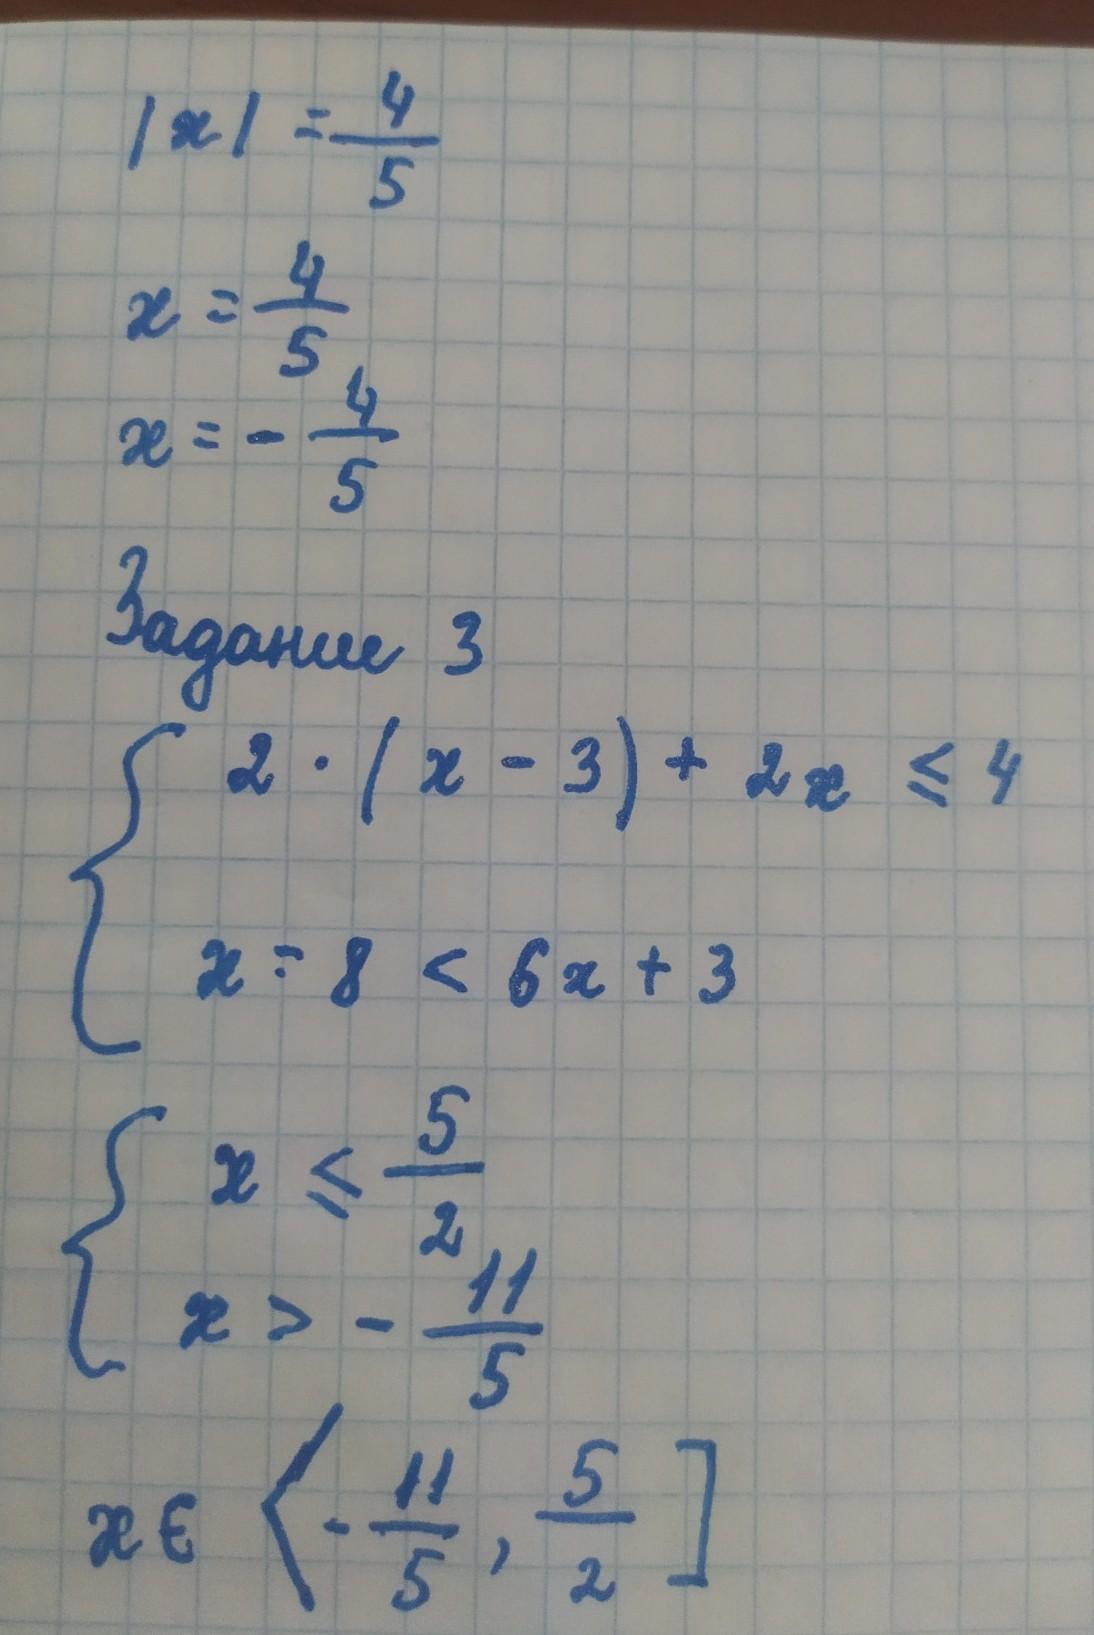 |x| = 4/5
x = 4/5
x = - 4/5
Задание 3
{ 2 · (x - 3) + 2x ≤ 4
x = 8 < 6x + 3
{ x ≤ 5/2
x > - 11/5
x ∈ ⟨ - 11/5 , 5/2 ]